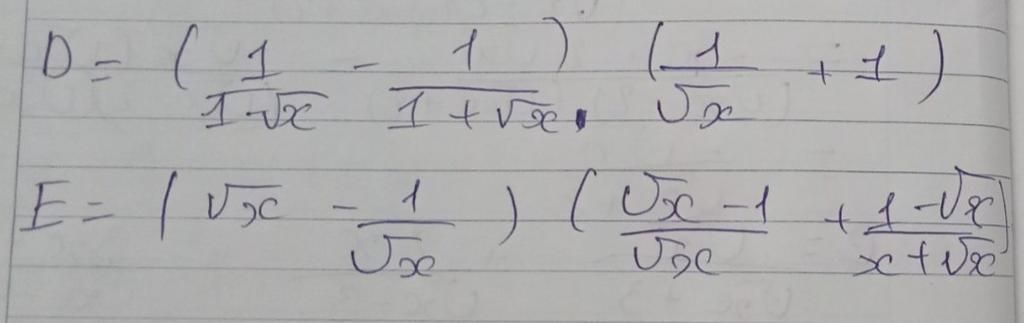 D = ( 1/(1-√x) - 1/(1+√x) ) ( 1/√x + 1 )
E = ( √x - 1/√x ) ( (√x-1)/√x + (1-√x)/(x+√x) )